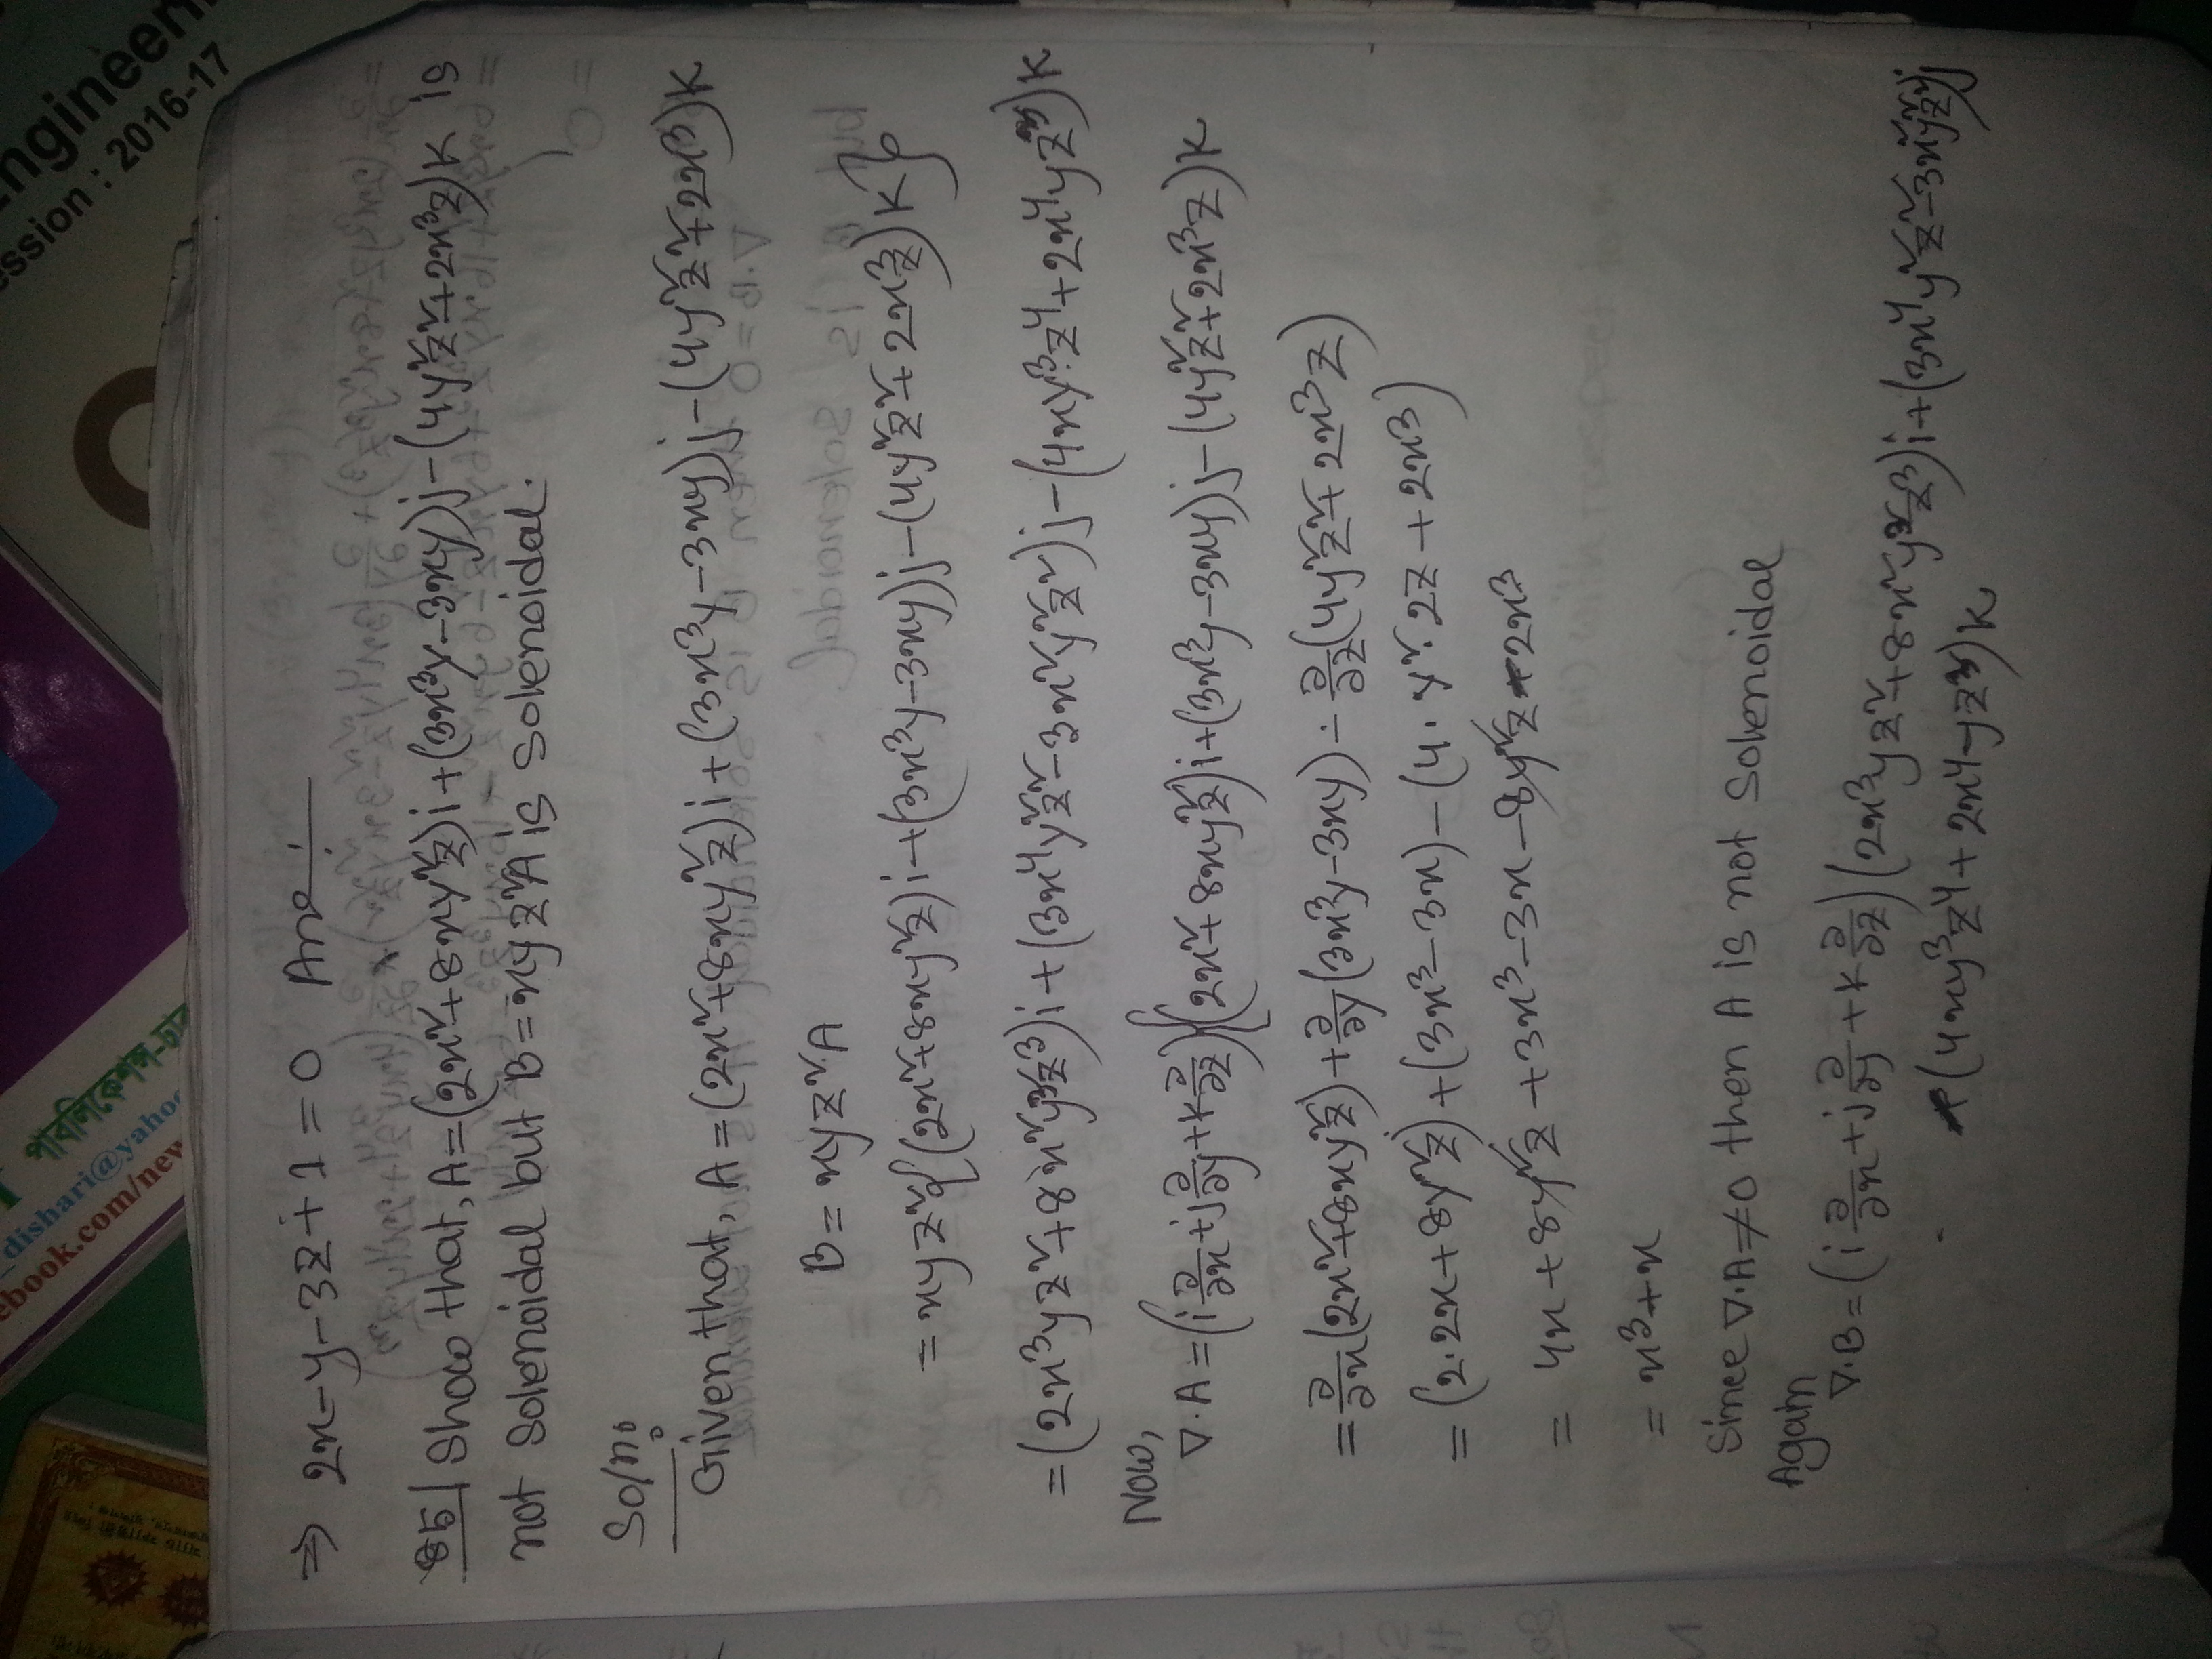 পাবলিকেশন্স-ঢাকা
_dishari@yahoo
ebook.com/new
Engineer
ession : 2016-17
⇒ 2x-y-3z+1=0 Ans:
85| Show that, A=(2x²+8xy²z)i+(3x³y-3xy)j-(4y²z²+2x³z)k is
not solenoidal but B=xyz²A is solenoidal.
Soln:
Given that, A=(2x²+8xy²z)i+(3x³y-3xy)j-(4y²z²+2x³)k
B=xyz².A
=xyz²{(2x²+8xy²z)i+(3x³y-3xy)j-(4y²z²+2x³z)k}
=(2x³yz²+8x²y³z³)i+(3x⁴y²z²-3x²y²z²)j-(4xy³z⁴+2x⁴yz³)k
Now,
∇.A=(i ∂/∂x+j ∂/∂y+k ∂/∂z){(2x²+8xy²z)i+(3x³y-3xy)j-(4y²z²+2x³z)k
=∂/∂x(2x²+8xy²z)+∂/∂y(3x³y-3xy)-∂/∂z(4y²z²+2x³z)
=(2.2x+8y²z)+(3x³-3x)-(4.y².2z+2x³)
= 4x+8y²z+3x³-3x-8y²z-2x³
= x³+x
Since ∇.A≠0 then A is not solenoidal
Again
∇.B=(i ∂/∂x+j ∂/∂y+k ∂/∂z)(2x³yz²+8x²y³z³)i+(3x⁴y²z²-3x²y²z²)j
-(4xy³z⁴+2x⁴yz³)k